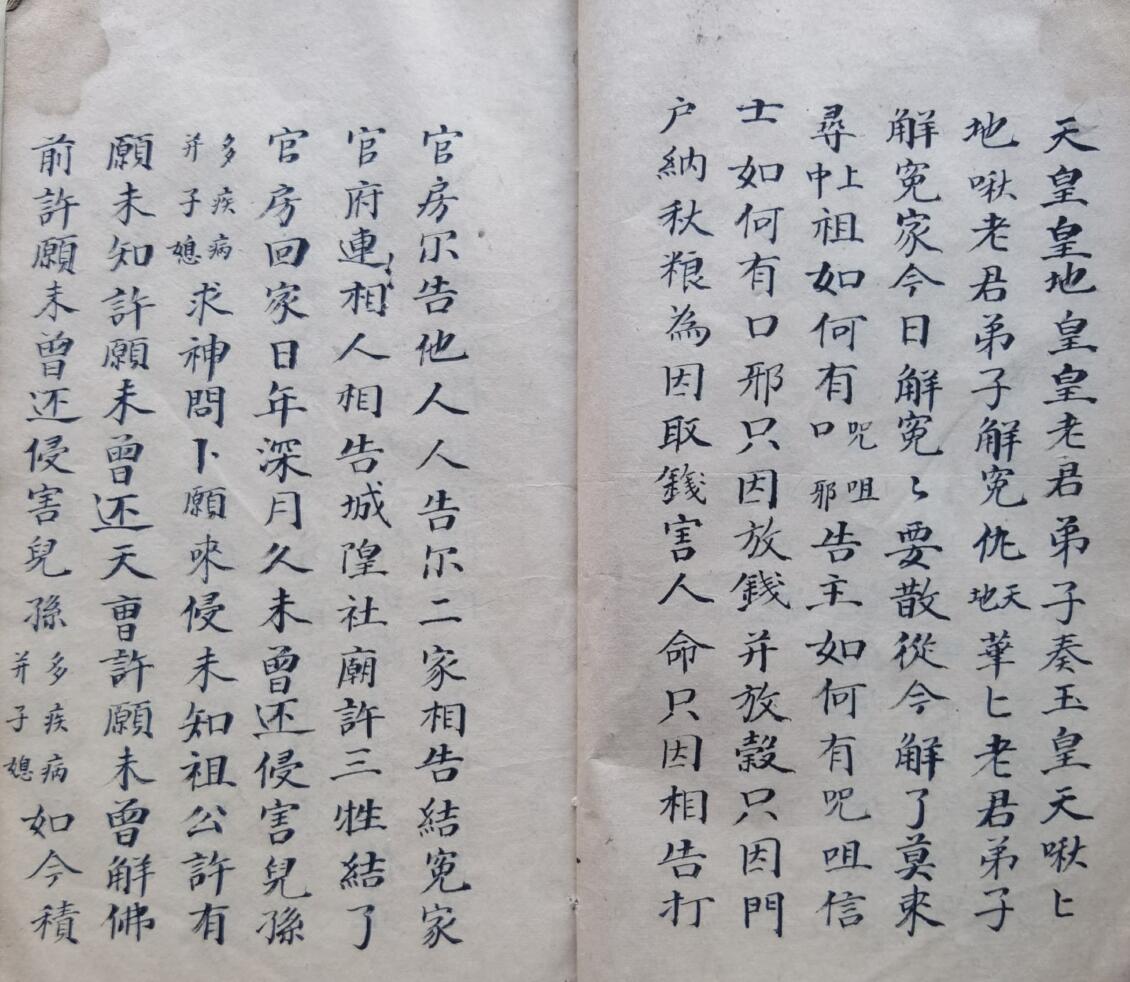 天皇皇地皇皇老君弟子奏玉皇天啾匕
地啾老君弟子解冤仇天地華匕老君弟子
解冤家今日解冤〻要散從今解了莫來
尋上中祖如何有咒咀口邪告主如何有咒咀信
士如何有口邪只因放錢并放穀只因門
户納秋粮為因取錢害人命只因相告打
官房尔告他人人告尔二家相告結冤家
官府連相人相告城隍社廟許三牲結了
官房回家日年深月久未曾还侵害兒孫
多疾病并子媳求神問卜願來侵未知祖公許有
願未知許願未曾还天曹許願未曾解佛
前許願未曾还侵害兒孫多疾病并子媳如今積